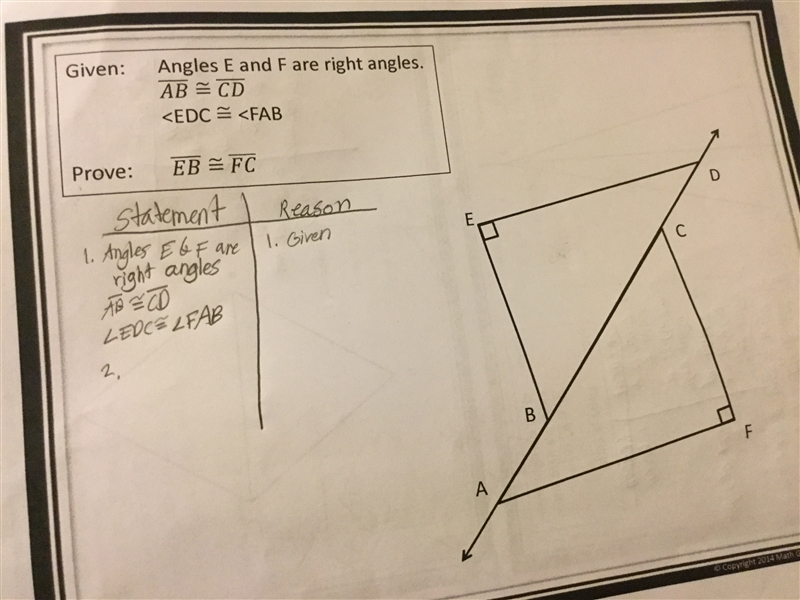 Given: Angles E and F are right angles.
AB ≅ CD
<EDC ≅ <FAB
Prove: EB ≅ FC
Statement Reason
1. Angles E & F are
right angles
AB ≅ CD
∠EDC ≅ ∠FAB
1. Given
2.
E
D
C
B
A
F
© Copyright 2014 Math